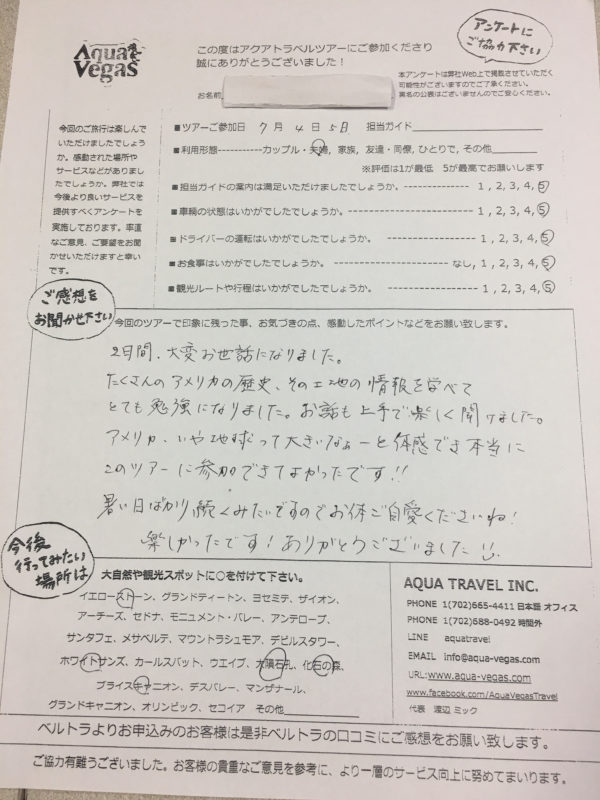 Aqua Vegas
この度はアクアトラベルツアーにご参加くださり
誠にありがとうございました！
アンケートに
ご協力下さい
本アンケートは弊社Web上で掲載させていただく
可能性がございますのでご了承ください。
実名の公表はございませんのでご安心ください。
お名前
今回のご旅行は楽しんで
いただけましたでしょう
か。感動された場所や
サービスなどがありまし
たでしょうか。弊社では
今後より良いサービスを
提供すべくアンケートを
実施しております。率直
なご意見、ご要望をお聞
かせいただけますと幸い
です。
■ツアーご参加日 7月4日5日 担当ガイド
■利用形態-----------カップル・夫婦, 家族, 友達・同僚, ひとりで, その他
※評価は1が最低 5が最高でお願いします
■担当ガイドの案内は満足いただけましたでしょうか。---------------- 1, 2, 3, 4, 5
■車輌の状態はいかがでしたでしょうか。---------------- 1, 2, 3, 4, 5
■ドライバーの運転はいかがでしたでしょうか。---------------- 1, 2, 3, 4, 5
■お食事はいかがでしたでしょうか。---------------- なし, 1, 2, 3, 4, 5
■観光ルートや行程はいかがでしたでしょうか。---------------- 1, 2, 3, 4, 5
ご感想を
お聞かせ下さい
今回のツアーで印象に残った事、お気づきの点、感動したポイントなどをお願い致します。
2日間、大変お世話になりました。
たくさんのアメリカの歴史、その土地の情報を学べて
とても勉強になりました。お話も上手で楽しく聞けました。
アメリカ、いや地球って大きいなぁーと体感でき本当に
このツアーに参加できてよかったです!!
暑い日ばかり続くみたいですのでお体ご自愛くださいね!
楽しかったです! ありがとうございました
今後
行ってみたい
場所は
大自然や観光スポットに○を付けて下さい。
イエローストーン、グランドティートン、ヨセミテ、ザイオン、
アーチーズ、セドナ、モニュメント・バレー、アンテロープ、
サンタフェ、メサベルデ、マウントラシュモア、デビルスタワー、
ホワイトサンズ、カールスバット、ウエイブ、大隕石孔、化石の森、
ブライスキャニオン、デスバレー、マンザナール、
グランドキャニオン、オリンピック、セコイア その他
AQUA TRAVEL INC.
PHONE 1(702)665-4411 日本語 オフィス
PHONE 1(702)688-0492 時間外
LINE aquatravel
EMAIL info@aqua-vegas.com
URL:www.aqua-vegas.com
www.facebook.com/AquaVegasTravel
代表 渡辺 ミック
ベルトラよりお申込みのお客様は是非ベルトラの口コミにご感想をお願い致します。
ご協力有難うございました。お客様の貴重なご意見を参考に、より一層のサービス向上に努めてまいります。